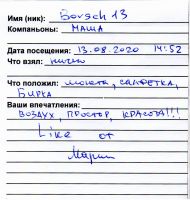 Имя (ник): Borsch 13
Компаньоны: МАША
Дата посещения: 13.08.2020 14:52
Что взял: ничего
Что положил: монета, САЛФЕТКА,
БИРКА
Ваши впечатления:
ВОЗДУХ, ПРОСТОР, КРАСОТА!!!
Like от
Марии